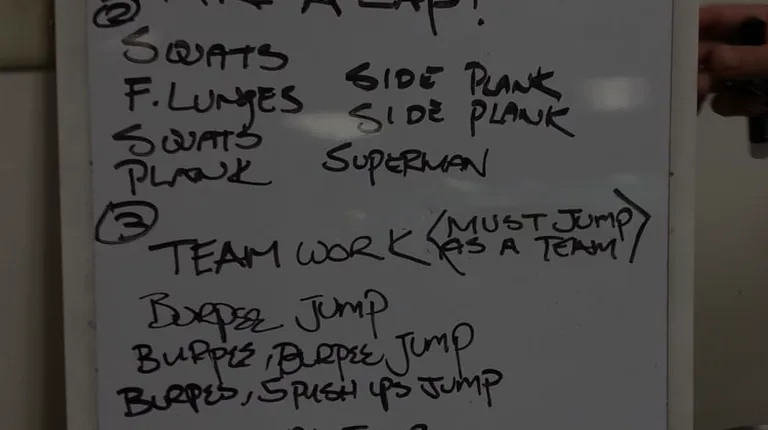 ② A LAP!
SQUATS
F. LUNGES SIDE PLANK
SQUATS SIDE PLANK
PLANK SUPERMAN
③ TEAM WORK <MUST JUMP
AS A TEAM>
BURPEE JUMP
BURPEE, BURPEE JUMP
BURPEE, 5 PUSH UPS JUMP